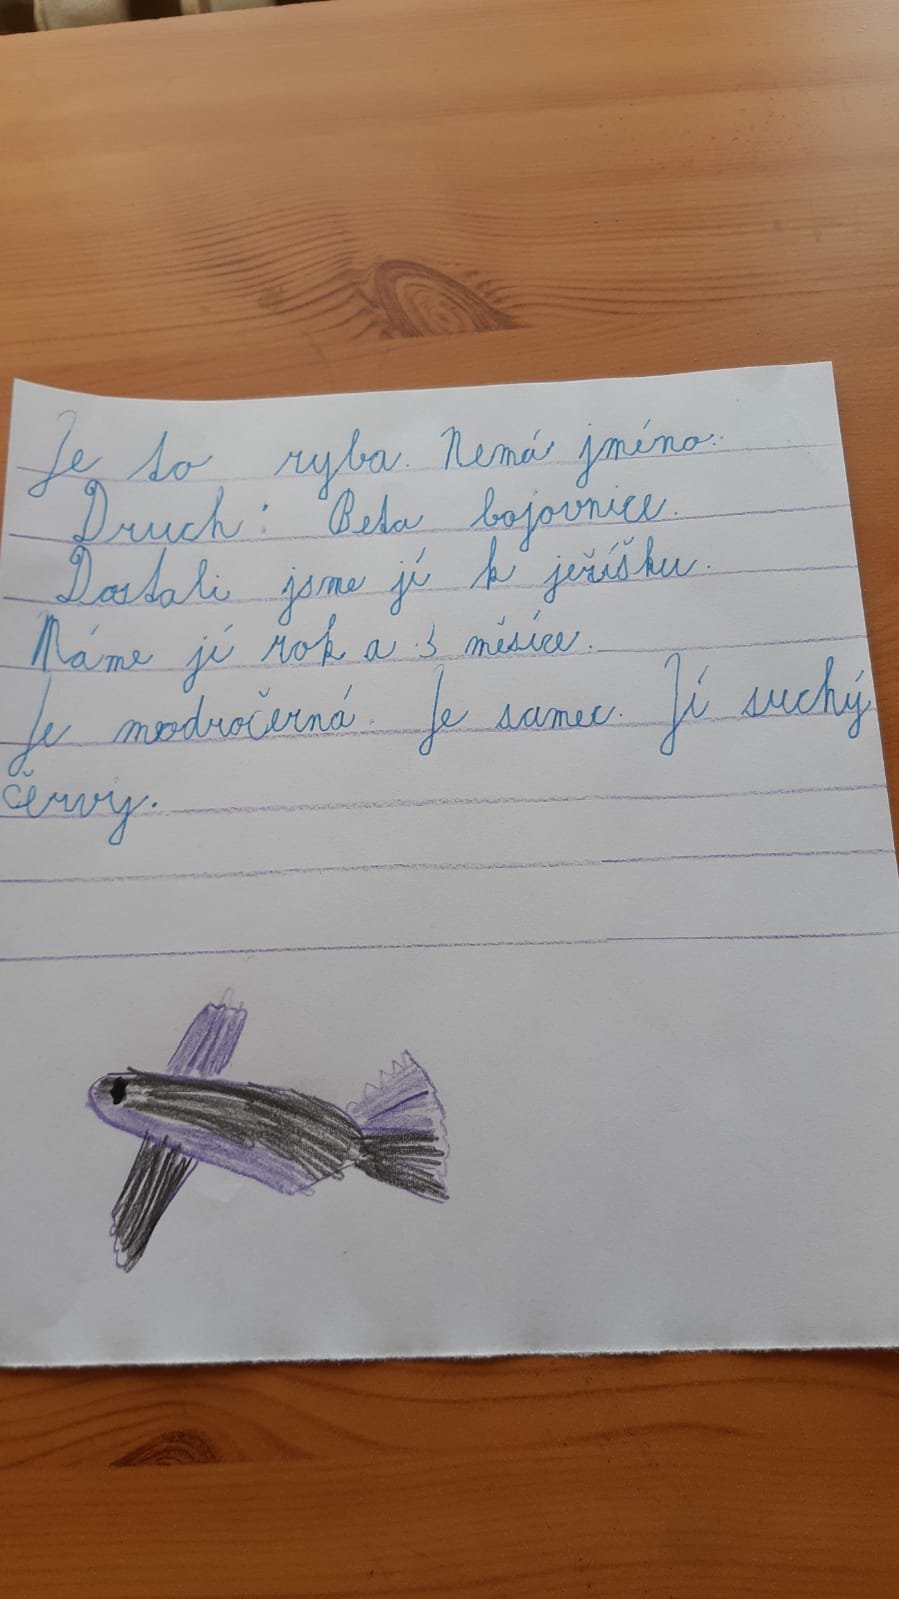 Je to ryba. Nemá jméno.
Druch: Beta bojovnice.
Dostali jsme jí k ježíšku.
Máme jí rok a 3 měsíce.
Je modročerná. Je samec. Jí suchý
červy.